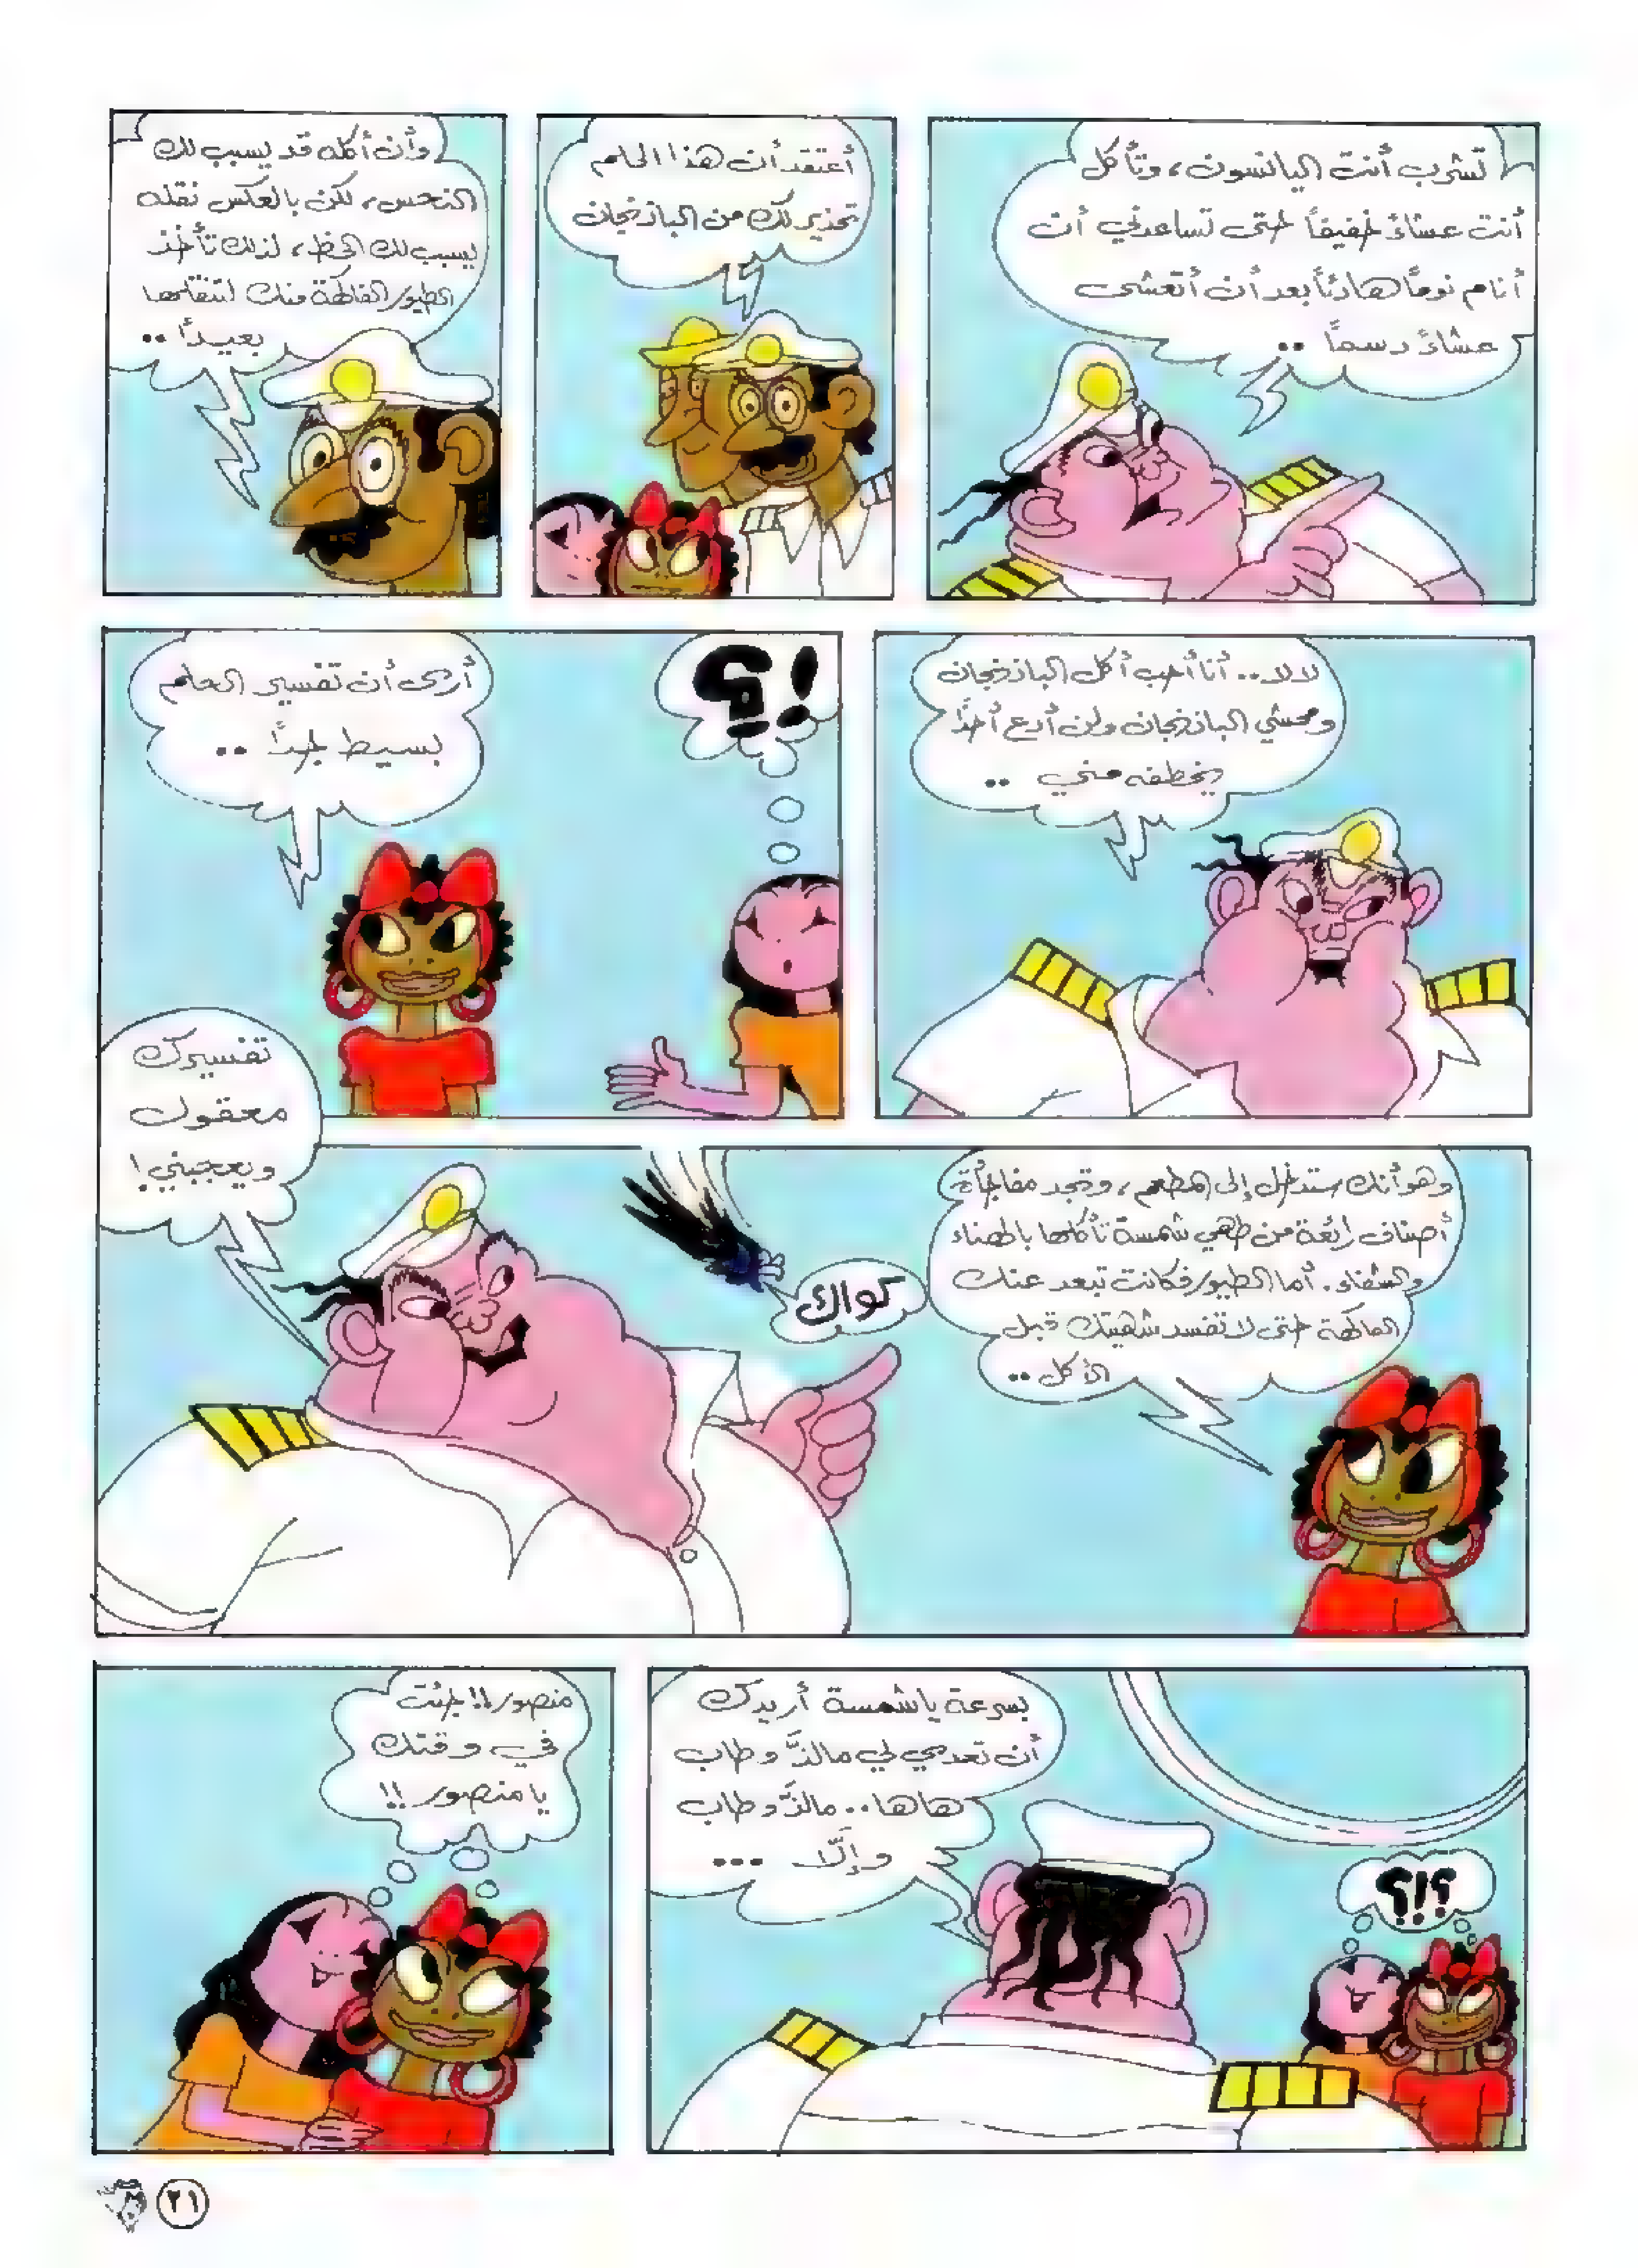 تشرب أنت اليانسون، وتأكل
أنت عشاءً خفيفاً حتى تساعدني أن
أنام نومًا هادئاً بعد أن أتعشى
عشاءً دسماً ..
أعتقد أن هذا الحلم
تحذير لك من الباذنجان
وأن أكله قد يسبب لك
النحس، لكن بالعكس نقله
يسبب لك الحظ، لذلك تأخذ
الطيور الفاكهة منك لتنقلها
بعيداً ..
لا لا.. أنا أحب أكل الباذنجان
ومحشي الباذنجان ولن أدع أحدًا
يخطفه مني ..
!؟
أرى أن تفسير الحلم
بسيط جداً ..
وهو أنك ستدخل إلى المطعم، وتجد مفاجأة
أصناف رائعة من طهي شمسة تأكلها بالهناء
والشفاء. أما الطيور فكانت تبعد عنك
الفاكهة حتى لا تفسد شهيتك قبل
الأكل ..
كواك
تفسيرك
معقول
ويعجبني!
بسرعة يا شمسة أريدك
أن تعدي لي ما لذَّ وطاب
هاها.. ما لذَّ وطاب
وإلَّا ...
؟!؟
منصور!! جئت
في وقتك
يا منصور!!
٢١